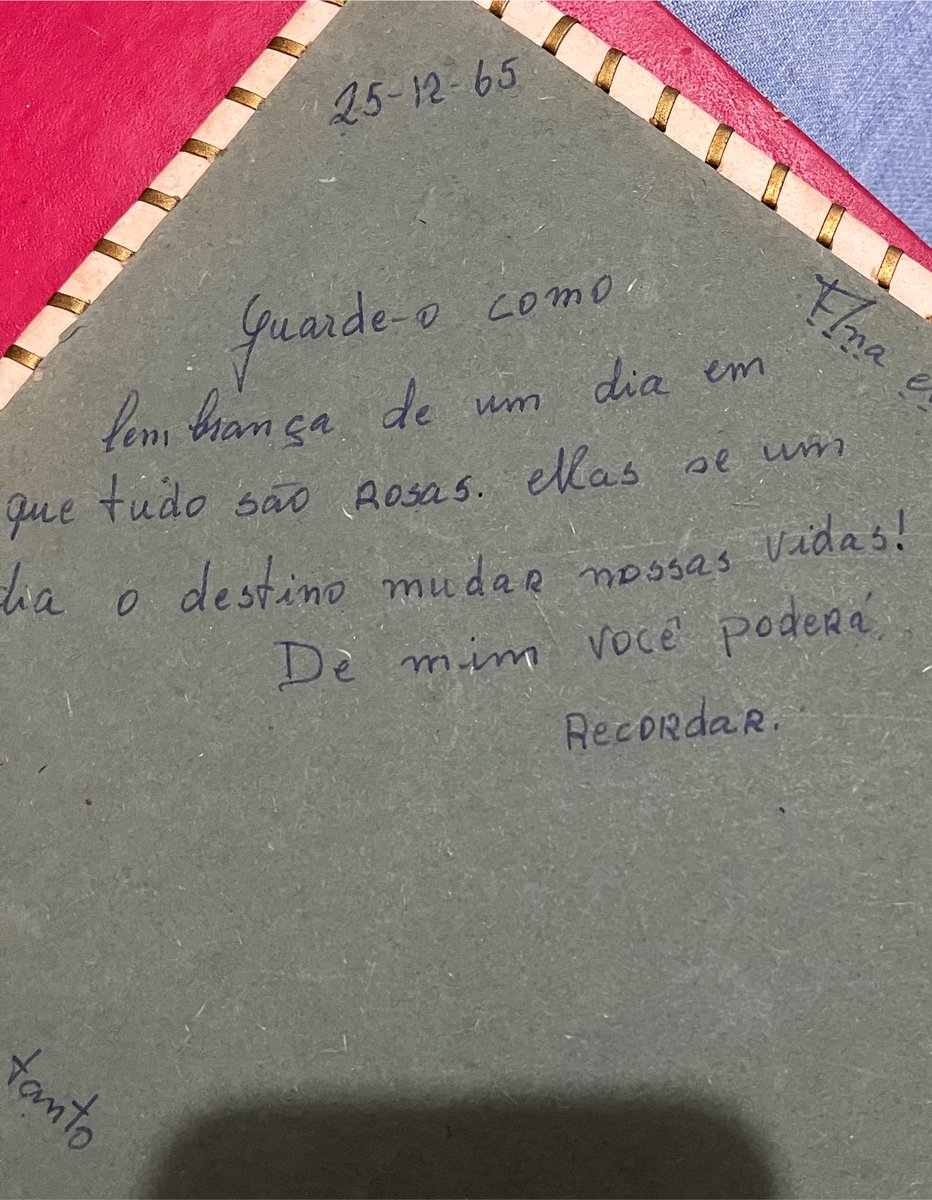 25-12-65
Guarde-o como
lembrança de um dia em
que tudo são Rosas. Mas se um
dia o destino mudar nossas vidas!
De mim você poderá
Recordar.
Ana
tanto